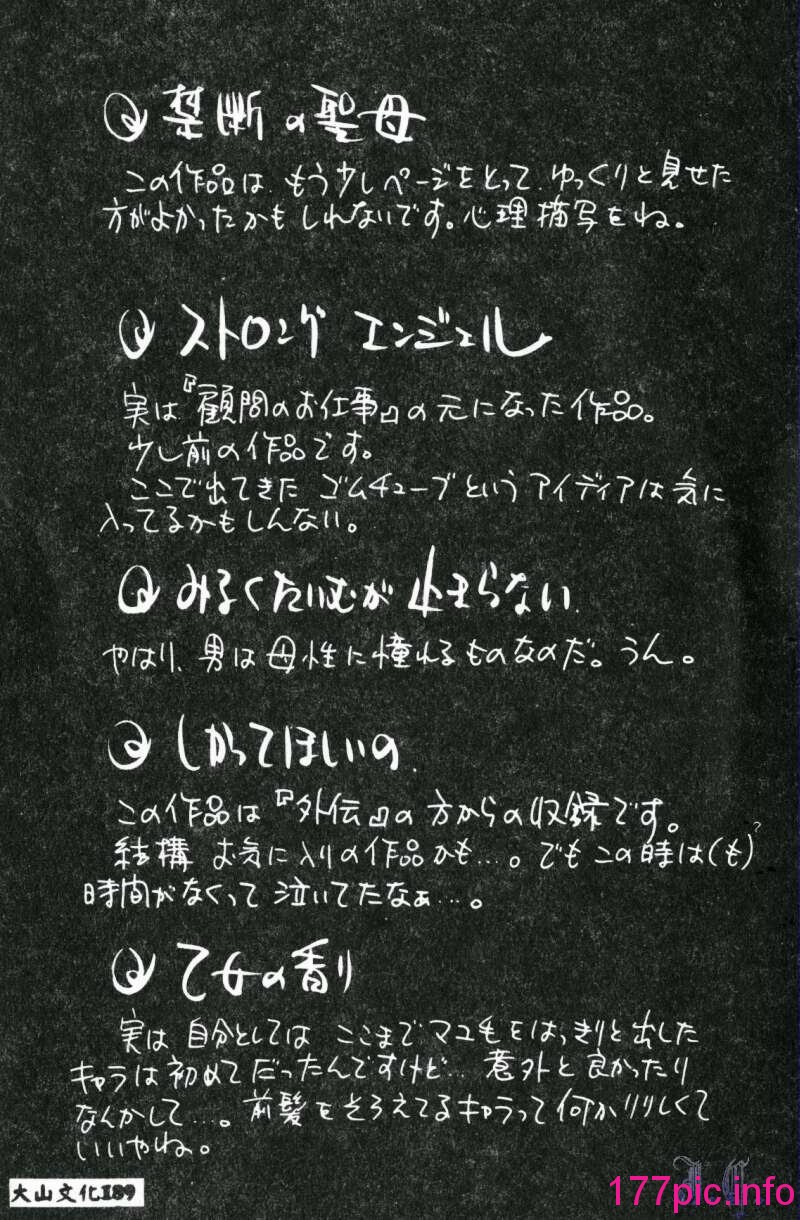 禁断の聖母
この作品は、もう少しページをとって、ゆっくりと見せた
方がよかったかもしれないです。心理描写をね。
ストロング エンジェル
実は『顧問のお仕事』の元になった作品。
少し前の作品です。
ここで出てきた ゴムチューブというアイディアは気に
入ってるかもしんない。
みるくたいむが止まらない
やはり、男は母性に憧れるものなのだ。うん。
しかってほしいの
この作品は『外伝』の方からの収録です。
結構 お気に入りの作品かも…。でもこの時は(も)?
時間がなくって 泣いてたなぁ…。
乙女の香り
実は 自分としては ここまでマユ毛をはっきりと出した
キャラは初めてだったんですけど… 意外と良かったり
なんかして…。前髪をそろえてるキャラって何かりりしくて
いいやね。
大山文化I89
177pic.info